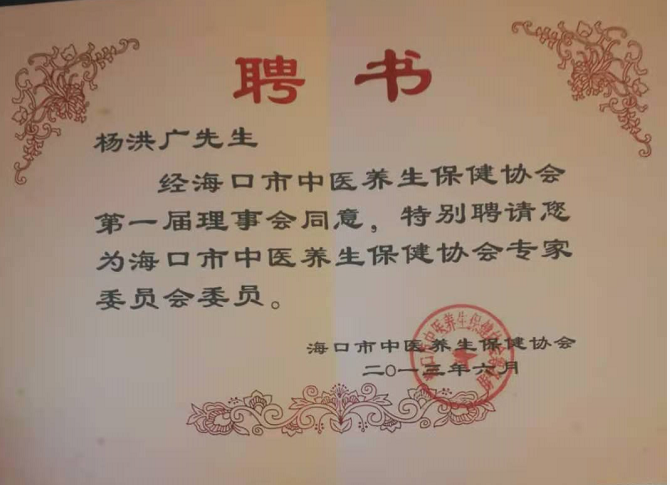 聘书
杨洪广先生
经海口市中医养生保健协会
第一届理事会同意，特别聘请您
为海口市中医养生保健协会专家
委员会委员。
海口市中医养生保健协会
二〇一三年六月